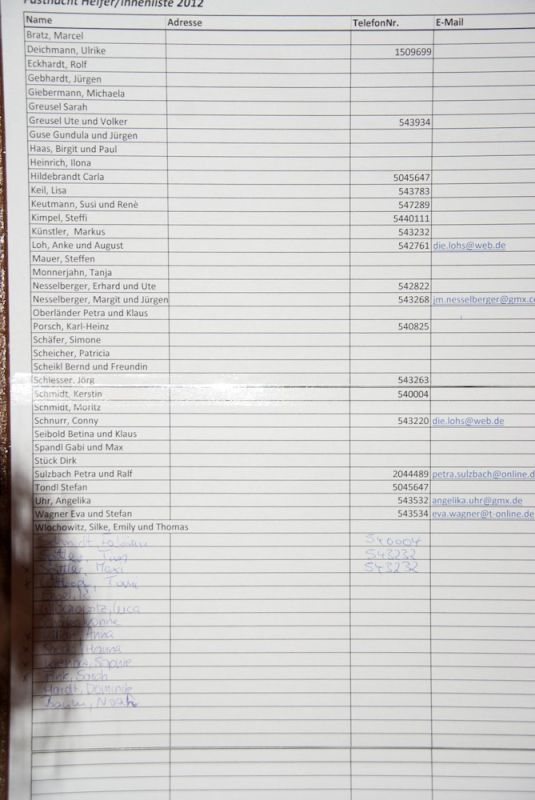 Fastnacht Helfer/innenliste 2012
Name Adresse TelefonNr. E-Mail
Bratz, Marcel
Deichmann, Ulrike 1509699
Eckhardt, Rolf
Gebhardt, Jürgen
Giebermann, Michaela
Greusel Sarah
Greusel Ute und Volker 543934
Guse Gundula und Jürgen
Haas, Birgit und Paul
Heinrich, Ilona
Hildebrandt Carla 5045647
Keil, Lisa 543783
Keutmann, Susi und Renè 547289
Kimpel, Steffi 5440111
Künstler, Markus 543232
Loh, Anke und August 542761 die.lohs@web.de
Mauer, Steffen
Monnerjahn, Tanja
Nesselberger, Erhard und Ute 542822
Nesselberger, Margit und Jürgen 543268 jm.nesselberger@gmx.c
Oberländer Petra und Klaus
Porsch, Karl-Heinz 540825
Schäfer, Simone
Scheicher, Patricia
Scheikl Bernd und Freundin
Schlesser, Jörg 543263
Schmidt, Kerstin 540004
Schmidt, Moritz
Schnurr, Conny 543220 die.lohs@web.de
Seibold Betina und Klaus
Spandl Gabi und Max
Stück Dirk
Sulzbach Petra und Ralf 2044489 petra.sulzbach@online.d
Tondl Stefan 5045647
Uhr, Angelika 543532 angelika.uhr@gmx.de
Wagner Eva und Stefan 543534 eva.wagner@t-online.de
Wlochowitz, Silke, Emily und Thomas
Schmidt, 540004
Tim 543232
Maxi 543232
Luca
Anna
Hanna
Sophie
Sarah
Haidt, Dominik
Noah